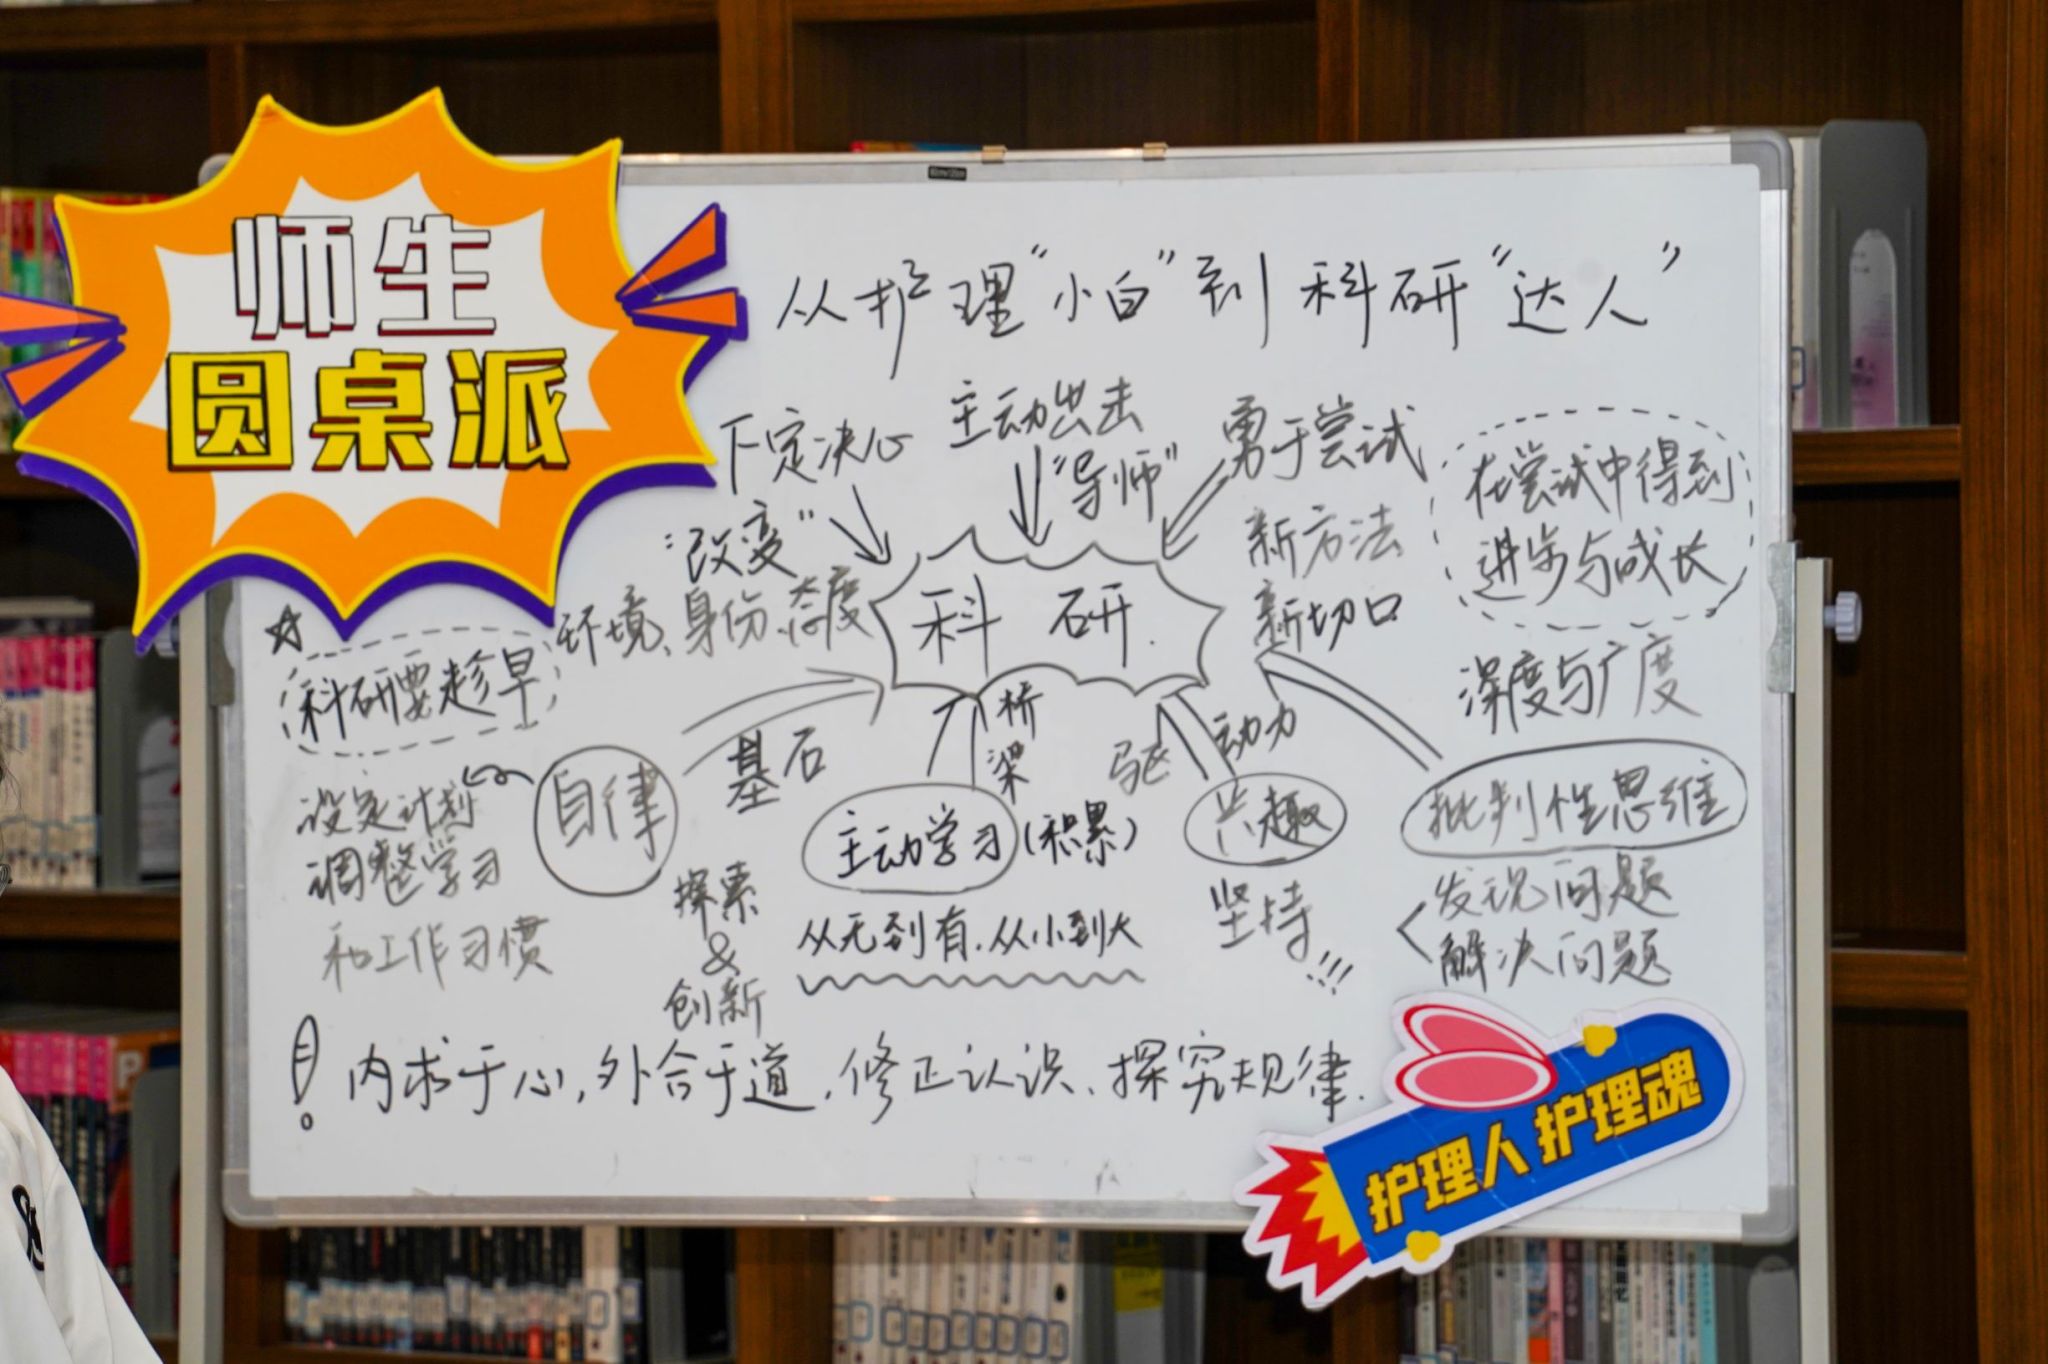 师生
圆桌派
从护理“小白”到科研“达人”
下定决心
主动出击
“导师”
勇于尝试
在尝试中得到
进步与成长
“改变”
新方法
新切口
环境、身份、态度
科研
科研要趁早
深度与广度
桥梁
驱动力
基石
自律
设定计划
调整学习
和工作习惯
主动学习(积累)
兴趣
批判性思维
探索
&
创新
从无到有.从小到大
坚持
!!!
发现问题
解决问题
! 内求于心,外合于道,修正认识、探究规律.
护理人 护理魂